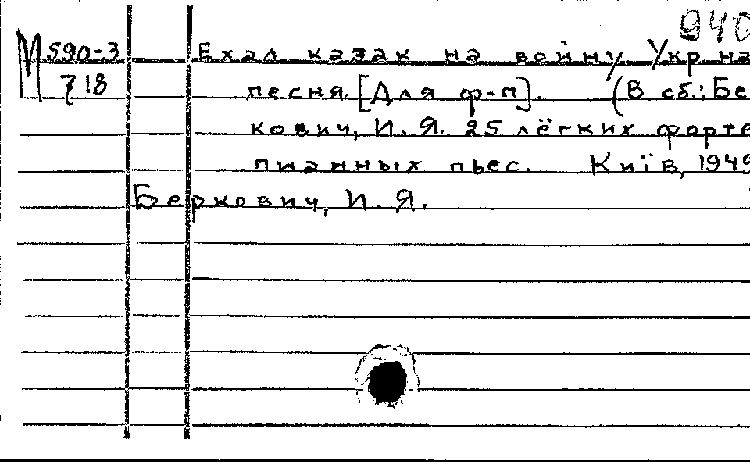 940
М 590-3 Ехал казак на войну. Укр. на
718 песня. [Для ф-п]. (В сб.: Бер
кович, И. Я. 25 лёгких форте
пианных пьес. Київ, 1949
Беркович, И. Я.